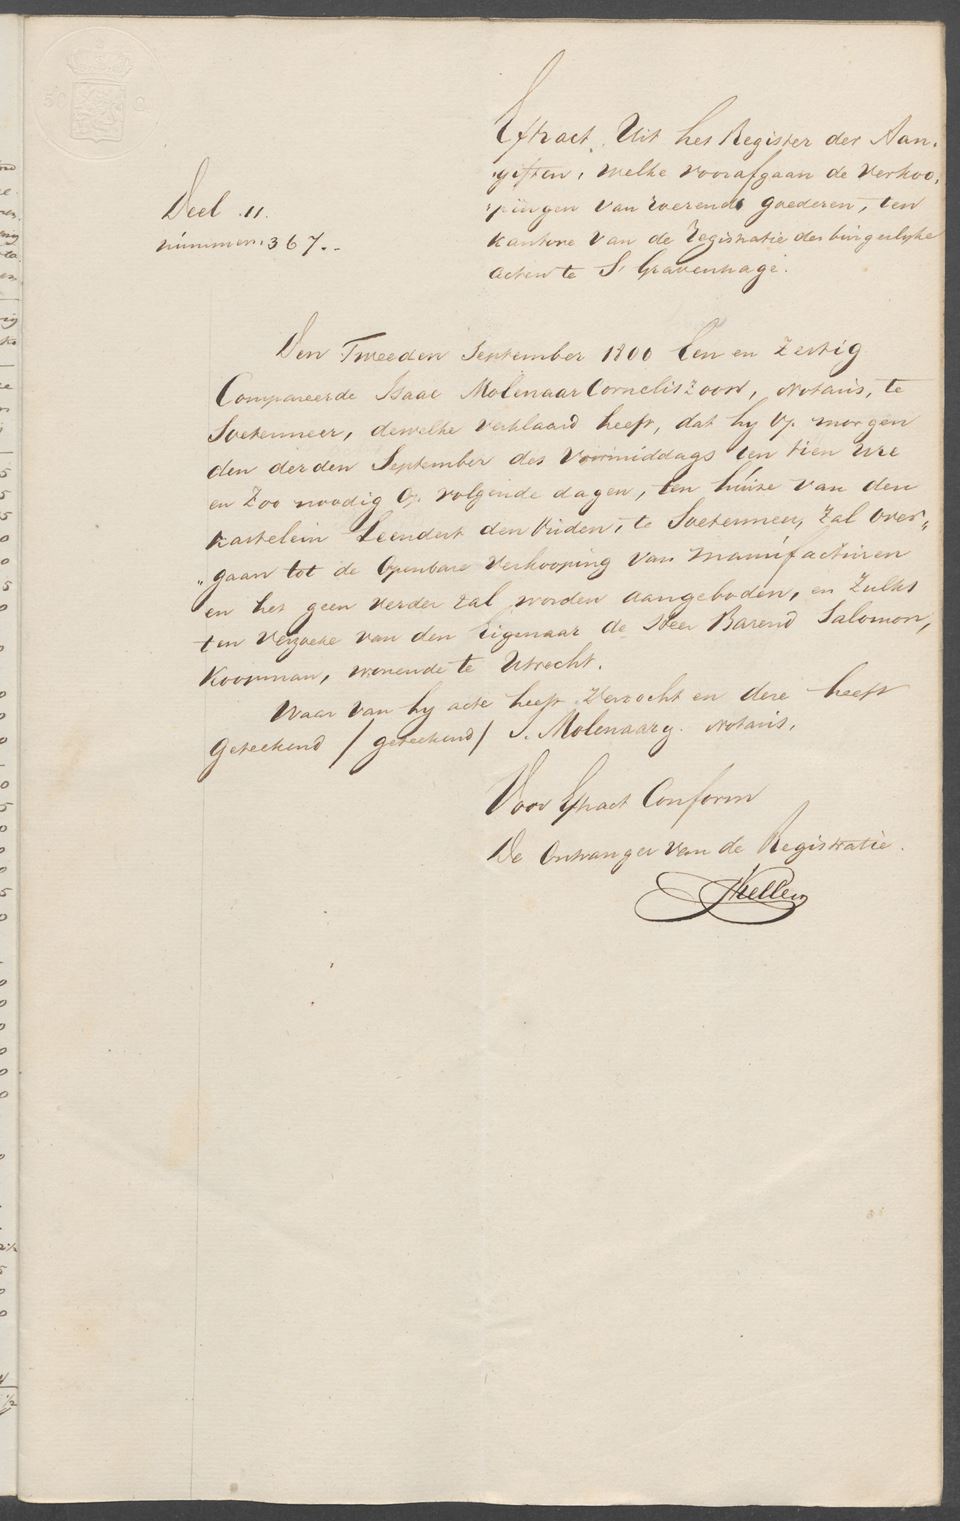 Extract Uit het Register der Aan-
giften, welke voorafgaan de verkoo-
pingen van roerende goederen, ten
kantore van de Registratie der burgerlyke
acten te S' Gravenhage.
Deel 11.
nummer 367.
Den Tweeden September 1800 Een en Zestig
Compareerde Isaac Molenaar Corneliszoon, Notaris, te
Soetermeer, dewelke verklaard heeft, dat hy op morgen
den derden September des voormiddags ten tien ure
en Zoo noodig op volgende dagen, ten huize van den
kastelein Leendert den Ouden, te Soetermeer, Zal over-
gaan tot de Openbare Verkooping van Manufacturen
en het geen verder zal worden aangeboden, en Zulks
ten verzoeke van den Eigenaar de Heer Barend Salomon,
Koopman, wonende te Utrecht.
Waar van hy acte heeft verzocht en deze heeft
geteekend / geteekend / I. Molenaar Notaris.
Voor Extract Conform
De Ontvanger van de Registratie.